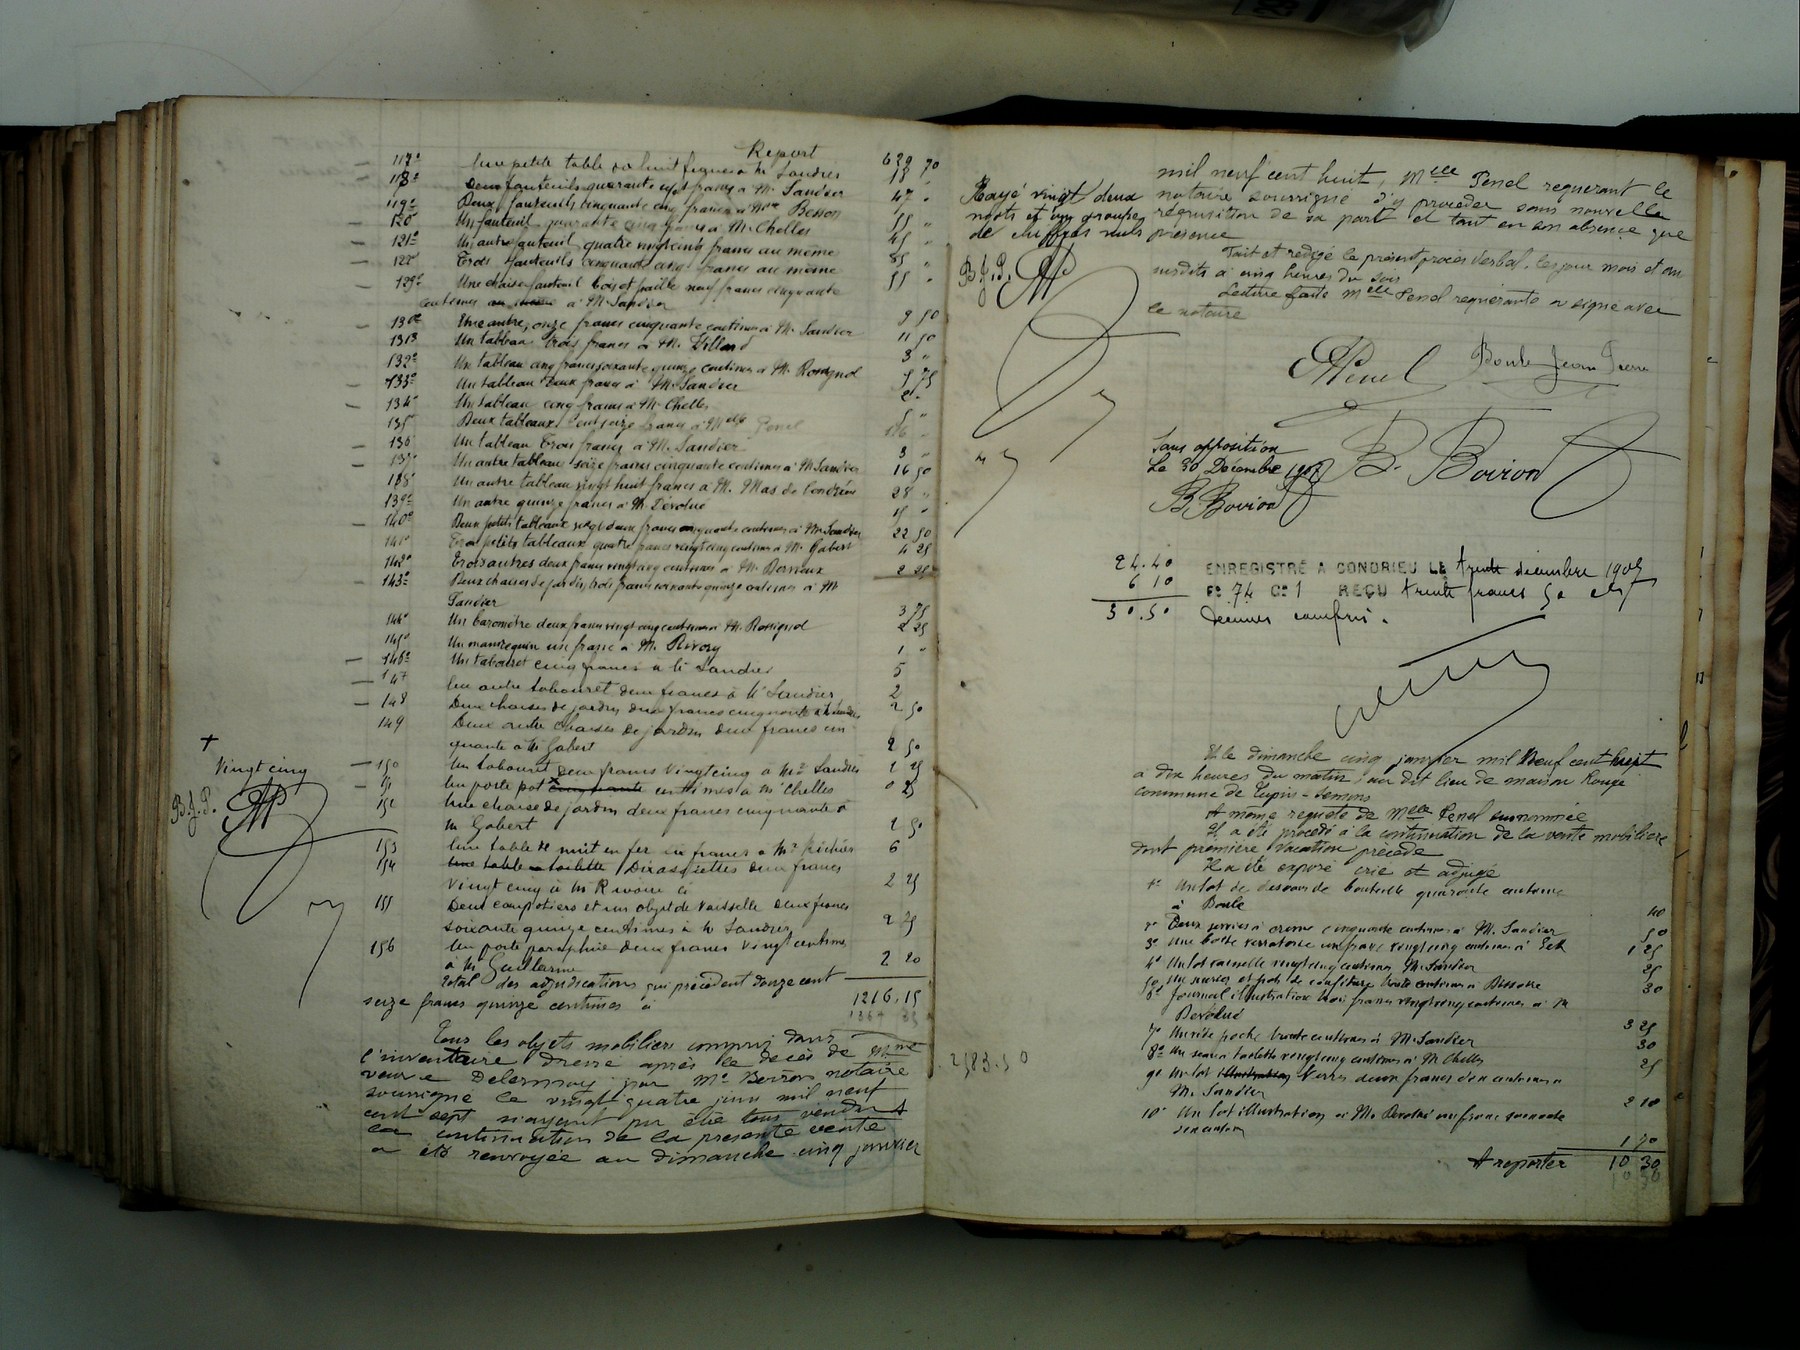 Report 639 70
117º Une petite table dix huit francs à M. Sandier 18 "
118º Deux fauteuils quarante sept francs à M. Sandier 47 "
119º Deux fauteuils cinquante cinq francs à Mme Besson 55 "
120º Un fauteuil quarante cinq francs à M. Chelles 45 "
121º Un autre fauteuil quatre vingt cinq francs au même 85 "
122º Trois fauteuils cinquante cinq francs au même 55 "
129º Une chaise fauteuil bois et paille neuf francs cinquante
centimes à M. Sandier 9 50
130º Une autre, onze francs cinquante centimes à M. Sandier 11 50
131º Un tableau trois francs à M. Villard 3 "
132º Un tableau cinq francs soixante quinze centimes à M. Rossignol 5 75
133º Un tableau deux francs à M. Sandier 2 "
134º Un tableau cinq francs à M. Chelles 5 "
135º Deux tableaux Cent seize francs à Melle Penel 116 "
136º Un tableau Trois francs à M. Sandier 3 "
137º Un autre tableau seize francs cinquante centimes à M. Sandier 16 50
138º Un autre tableau vingt huit francs à M. Mas de 28 "
139º Un autre quinze francs à M. Dévolué 15 "
140º Deux petits tableaux vingt deux francs cinquante centimes à M. Sandier 22 50
141º Trois petits tableaux quatre francs vingt cinq centimes à M. Gabert 4 25
142º Trois autres deux francs vingt cinq centimes à M. 2 25
143º Deux chaises de jardin trois francs soixante quinze centimes à M.
Sandier 3 75
144º Un baromètre deux francs vingt cinq centimes à M. Rossignol 2 25
145º Un mannequin un franc à M. Rivory 1 "
146º Un tabouret cinq francs à M. Sandier 5
147 Un autre tabouret deux francs à M. Sandier 2
148 Deux chaises de jardin deux francs cinquante à M. Sandier 2 50
149 Deux autre chaises de jardin deux francs cin
quante à M. Gabert 2 50
150 Un tabouret deux francs vingt cinq à Mr Sandier 2 25
+
Vingt cinq
151 Un porte pot cinquante centimes à Mr Chelles 0 25
B.J.P. AP
152 Une chaise de jardin deux francs cinquante à
M. Gabert 2 50
153 Une table de nuit en fer six francs à Mr 6
154 Une table toilette Dix assiettes deux francs
vingt cinq à M. Rivoire 2 25
155 Deux compotiers et un objet de vaisselle deux francs
soixante quinze centimes à M. Sandier 2 75
156 Un porte parapluie deux francs vingt centimes
à M. Guillerme 2 20
Total des adjudications qui précèdent douze cent
seize francs quinze centimes à 1216.15
Tous les objets mobiliers compris dans
l'inventaire dressé après le décès de Mme
veuve Delermoy par Me Boiron notaire
soussigné le vingt quatre juin mil neuf
cent sept n'ayant pu être tous vendus
la continuation de la présente vente
a été renvoyée au dimanche cinq janvier
mil neuf cent huit, Melle Penel requérant le
notaire soussigné d'y procéder sans nouvelle
réquisition de sa part et tant en son absence que
présence
Rayé vingt deux
mots et un groupe
de chiffres nuls
B.J.P. AP
Fait et rédigé le présent procès verbal, les jour mois et an
susdits à cinq heures du soir
Lecture faite Melle Penel requérante a signé avec
le notaire
APenel Boule Jean Pierre
B. Boiron
Sans opposition
Le 30 Décembre 1907
B Boiron
24.40
6 10
30.50
ENREGISTRÉ A CONDRIEU LE trente décembre 1907
Fº 74 Cº 1 REÇU trente francs 50 cts
Décimes compris.
Et le dimanche cinq janvier mil neuf cent huit
à dix heures du matin, au dit lieu de maison Rouge
commune de Tupin-Semons
A même requête de Melle Penel susnommée
Il a été procédé à la continuation de la vente mobilière
dont première vacation précède
Il a été exposé crié et adjugé
1º Un lot de dessous de bouteille quarante centimes
à Boule 40
2º Deux services à crème cinquante centimes à M. Sandier 50
3º Une boite verrotorie un franc vingt cinq centimes à 1 25
4º Un lot vaisselle vingt cinq centimes M. Sandier 25
5º Un et pots de confiture trente centimes à 30
6º Journal illustration trois francs vingt cinq centimes à M.
Dévolué 3 25
7º Un vide poche trente centimes à M. Sandier 30
8º Un seau toilette vingt cinq centimes à M. Chelles 25
9º Un lot illustration Verres deux francs dix centimes à
M. Sandier 2 10
10º Un lot illustration à M. Dévolué un franc soixante
dix centimes 1 70
A reporter 10 30
2583.50